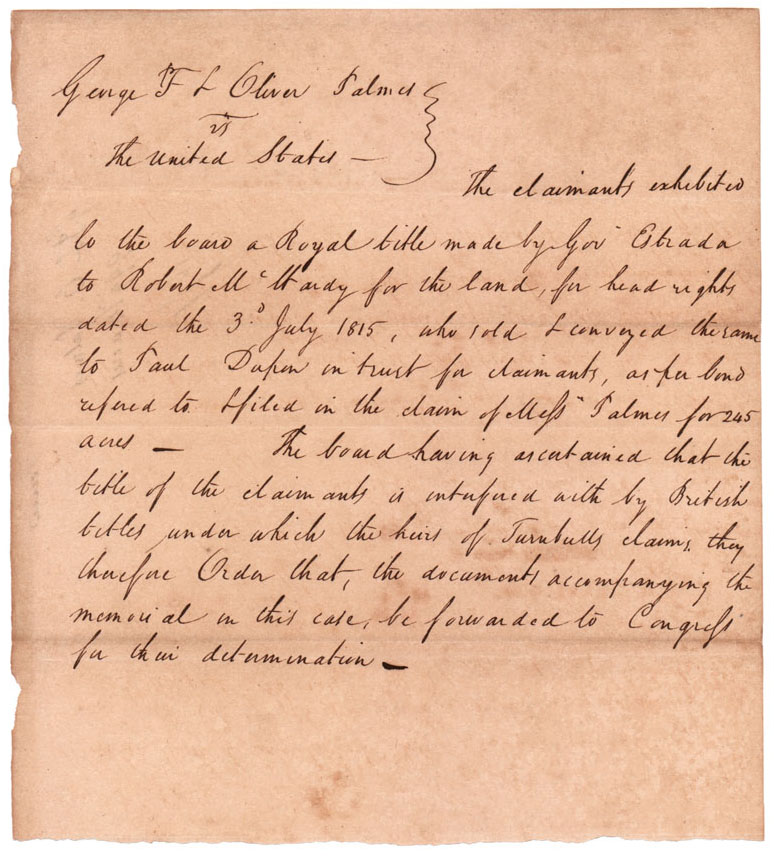 George F & Oliver Palmes
vs
The United States —
The claimants exhibited
to the board a Royal title made by Gov.r Estrada
to Robert Mc Hardy for the land, for head rights
dated the 3.d July 1815, who sold & conveyed the same
to Paul Dupon in trust for claimants, as per bond
refered to & filed in the claim of Mess.rs Palmes for 245
acres — The board having ascertained that the
title of the claimants is interfered with by British
titles, under which the heirs of Turnbulls claims, they
therefore Order that, the documents accompanying the
memorial in this case, be forwarded to Congress
for their determination —